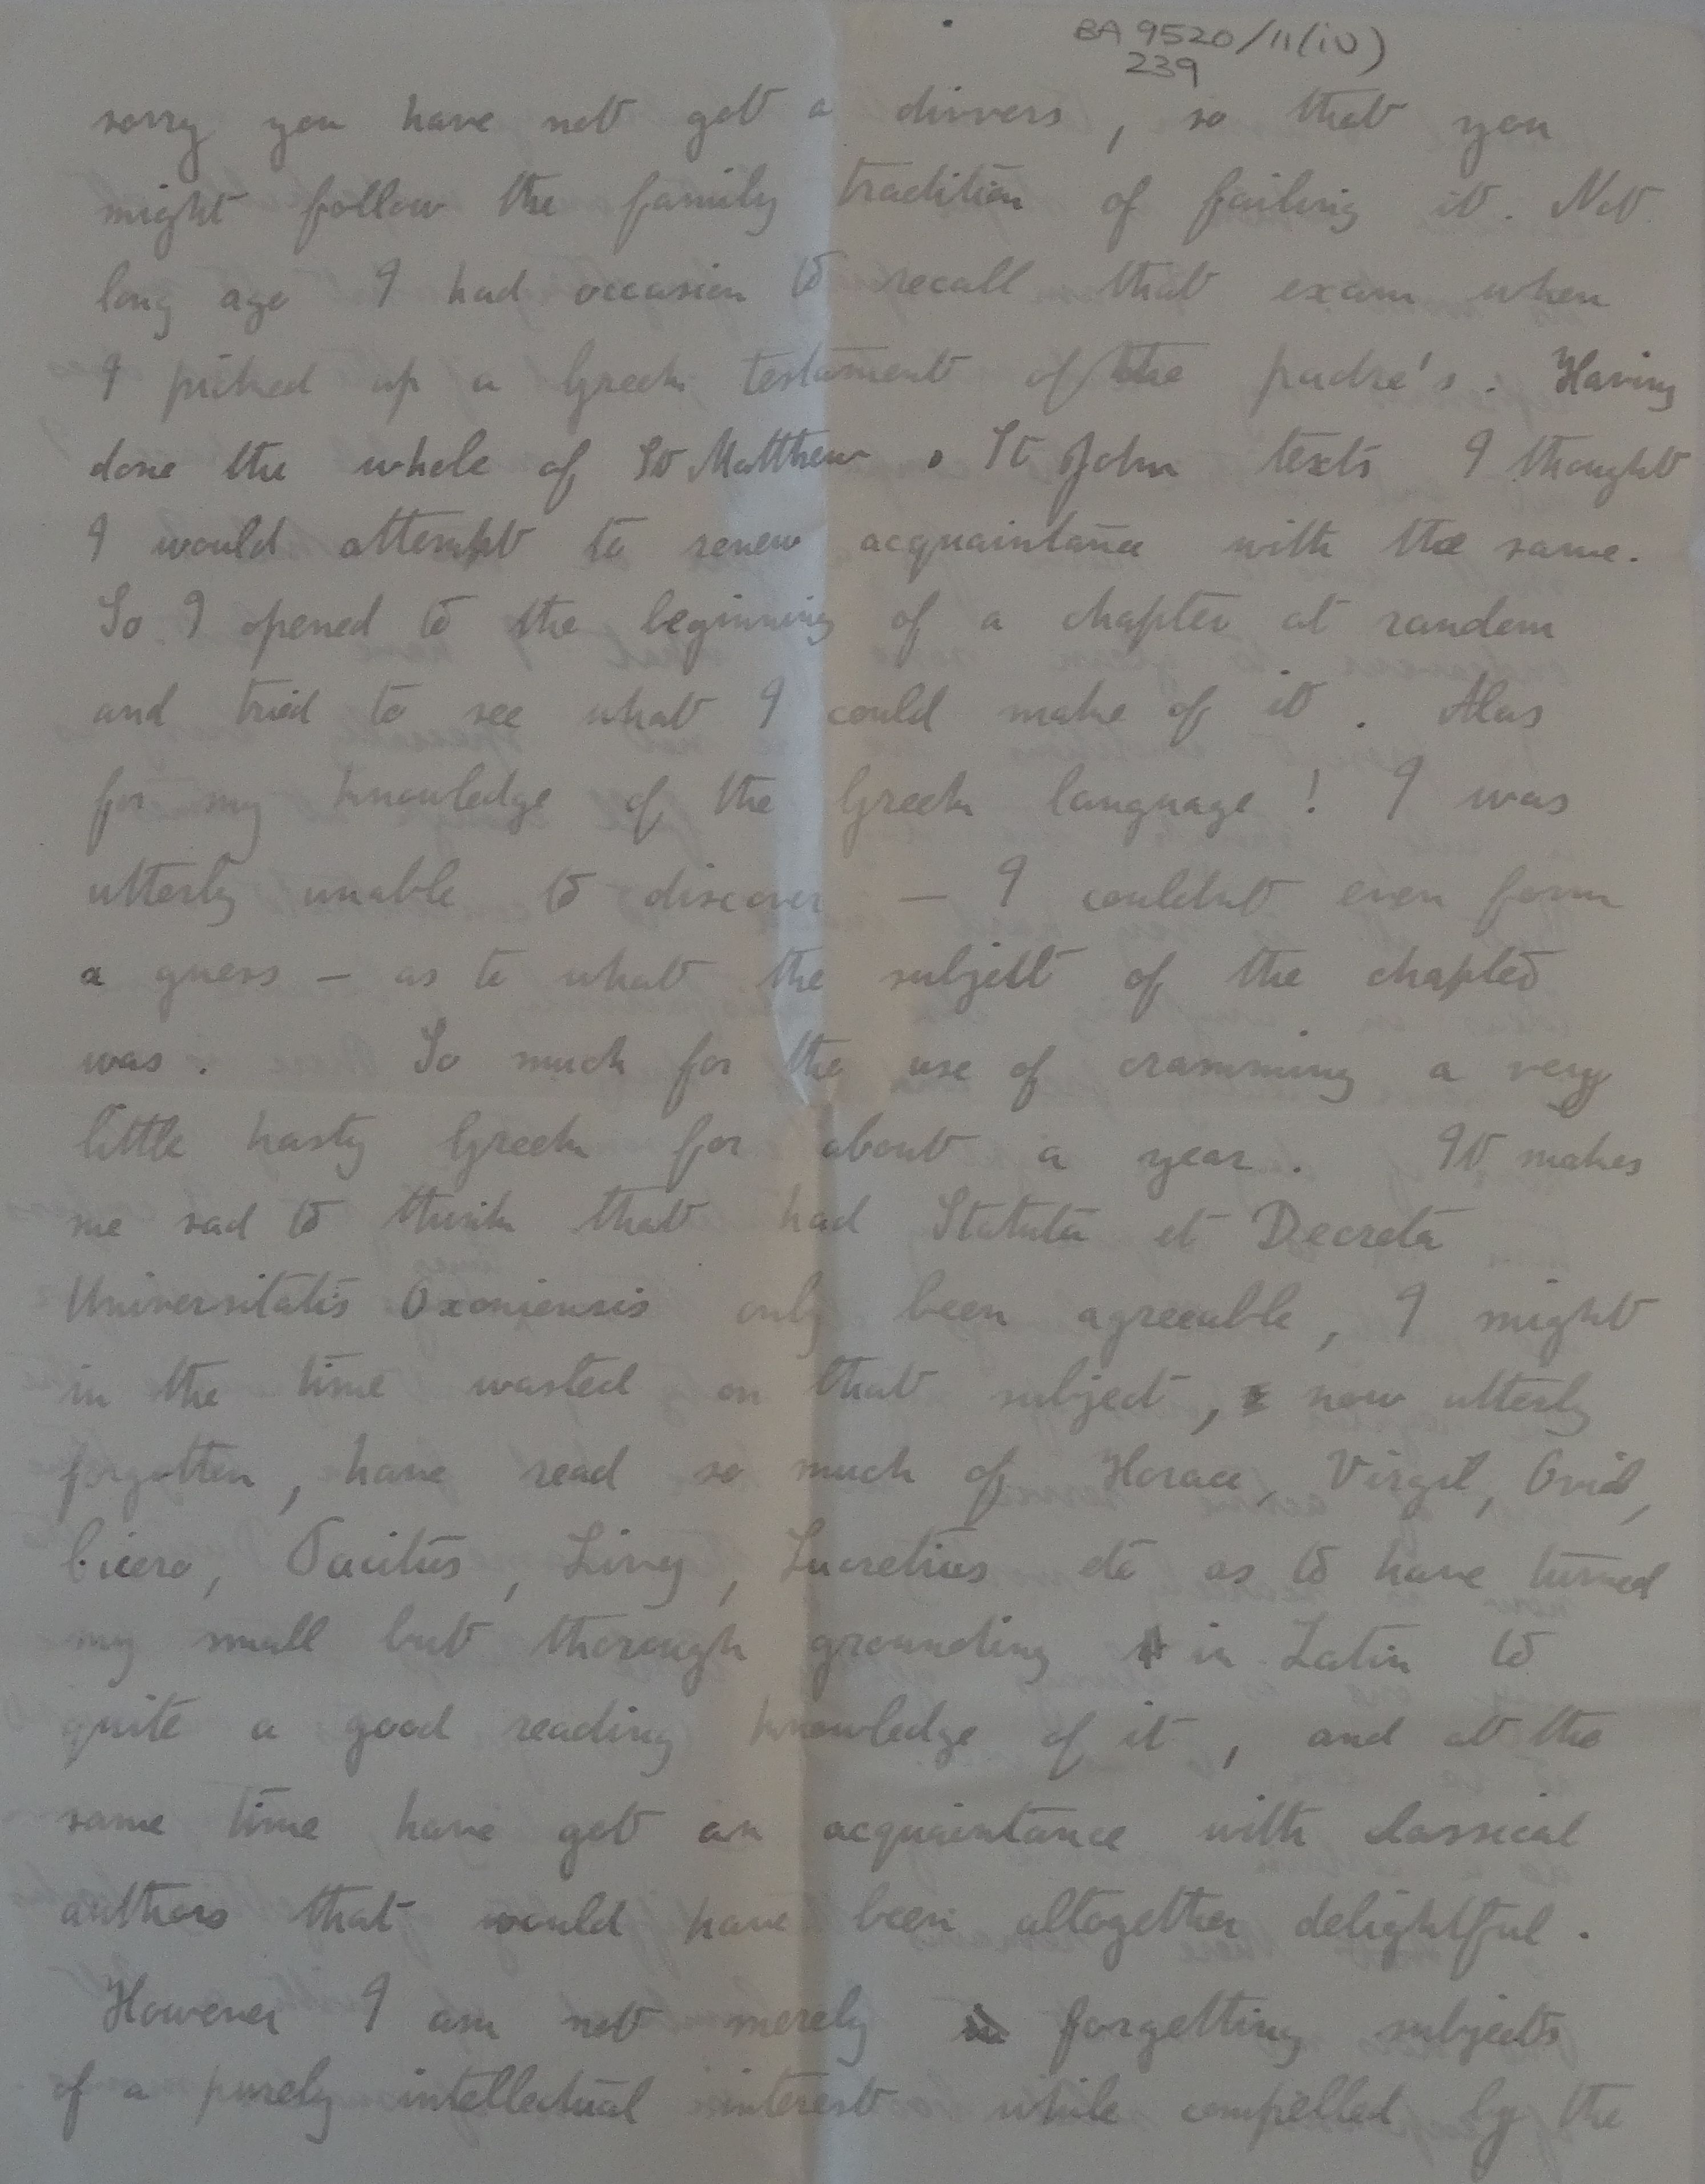 BA 9520/11(iv)
239
sorry you have not got a divvers, so that you
might follow the family tradition of failing it. Not
long ago I had occasion to recall that exam when
I picked up a Greek testament of the padre's. Having
done the whole of St Matthew & St John texts I thought
I would attempt to renew acquaintance with the same.
So I opened to the beginning of a chapter at random
and tried to see what I could make of it. Alas
for my knowledge of the Greek language! I was
utterly unable to discover — I couldnt even form
a guess — as to what the subject of the chapter
was. So much for the use of cramming a very
little hasty Greek for about a year. It makes
me sad to think that had Statuta et Decreta
Universitatis Oxoniensis only been agreeable, I might
in the time wasted on that subject, now utterly
forgotten, have read so much of Horace, Virgil, Ovid,
Cicero, Tacitus, Livy, Lucretius etc as to have turned
my small but thorough grounding in Latin to
quite a good reading knowledge of it, and at the
same time have got an acquaintance with classical
authors that would have been altogether delightful.
However I am not merely forgetting subjects
of a purely intellectual interest while compelled by the